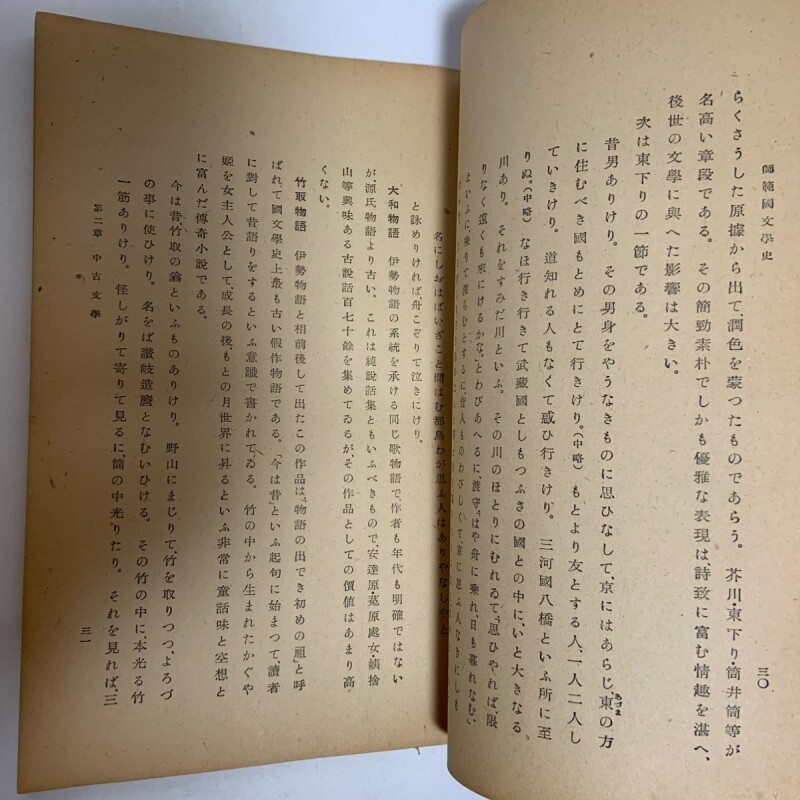 師範國文學史
三〇
らくさうした原據から出て、潤色を蒙つたものであらう。芥川・東下り・筒井筒等が
名高い章段である。その簡勁素朴でしかも優雅な表現は、詩致に富む情趣を湛へ、
後世の文學に與へた影響は大きい。
次は東下りの一節である。
昔男ありけり。その男身をやうなきものに思ひなして、京にはあらじ、東の方
あづま
に住むべき國もとめにとて行きけり。(中略)もとより友とする人、一人二人し
ていきけり。道知れる人もなくて惑ひ行きけり。三河國八橋といふ所に至
りぬ。(中略)なほ行き行きて武藏國としもつふさの國との中に、いと大きなる
川あり。それをすみだ川といふ。その川のほとりにむれゐて、「思ひやれば、限
りなく遠くも來にけるかな」とわびあへるに、渡守、「はや舟に乘れ、日も暮れなむ」
といふに、乘りて渡らむとするに、皆人ものわびしくて、京に思ふ人なきにしも
名にしおはばいざこと問はむ都鳥わが思ふ人はありやなしやと
と詠めりければ、舟こぞりて泣きにけり。
大和物語　伊勢物語の系統を承ける同じ歌物語で、作者も年代も明確ではない
が、源氏物語より古い。これは純說話集ともいふべきもので、安達原・菟原處女・姨捨
山等興味ある古說話百七十餘を集めてゐるが、その作品としての價値はあまり高
くない。
竹取物語　伊勢物語と相前後して出たこの作品は、「物語の出でき初めの祖」と呼
ばれ、て國文學史上最も古い假作物語である。「今は昔」といふ起句に始まつて、讀者
に對して昔語りをするといふ意識で書かれてゐる。竹の中から生まれたかぐや
姬を女主人公として、成長の後もとの月世界に昇るといふ非常に童話味と空想と
に富んだ傳奇小說である。
今は昔竹取の翁といふものありけり。野山にまじりて、竹を取りつつ、よろづ
の事に使ひけり。名をば讃岐造麿となむいひける。その竹の中に、本光る竹
一筋ありけり。怪しがりて寄りて見るに、筒の中光りたり。それを見れば、三
第二章　中古文學
三一